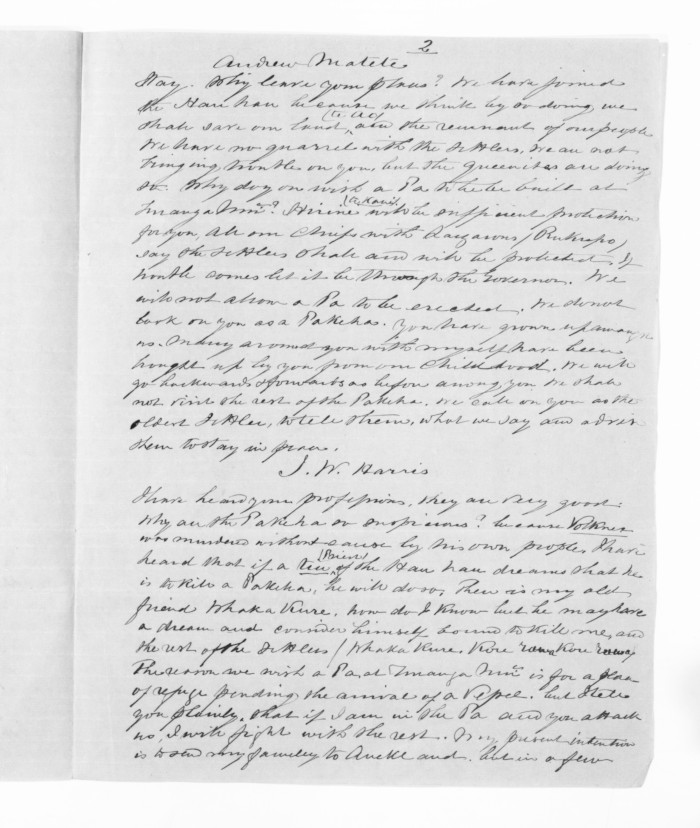 2
Andrew Matete
Stay. Why leave your place? We have joined
the Hau hau because we think by so doing, we
shall save our land, (Te Ao) and the remnant of our people
We have no quarrel with the Settlers, We are not
bringing trouble on you, but the Queenites are doing
so. Why do you wish a Pa to be built at
Turanga Nui? Hirini (Te Kani) will be sufficient protection
for you, all our Chiefs with Lazarus, (Rukupo)
say the Settlers shall and will be protected. If
trouble comes let it be through the Governor. We
will not allow a Pa to be erected. We do not
look on you as a Pakeha. You have grown up among
us. Many around you with myself have been
brought up by you from our Childhood. We will
go backwards & forwards as before among you We shall
not visit the rest of the Pakeha. We call on you as the
oldest Settler, to tell them, what we say and advise
them to stay in peace.
J. W. Harris
I have heard your professions, they are very good.
Why are the Pakeha so suspicious? because Volkner
was murdered without cause by his own people. I have
heard that if a tiu (Priest) of the Hau hau dreams that he
is to kill a Pakeha, he will do so. There is my old
friend Whaka Kure, how do I know but he may have
a dream and consider himself bound to kill me, and
the rest of the Settlers / Whaka Kure. Kore Kore
The reason we wish a Pa, at Turanga Nui is for a place
of refuge pending the arrival of a Vessel. but I tell
you plainly, that if I am in the Pa and you attack
us, I will fight with the rest. My present intention
is to send my family to Auckland. but in a few